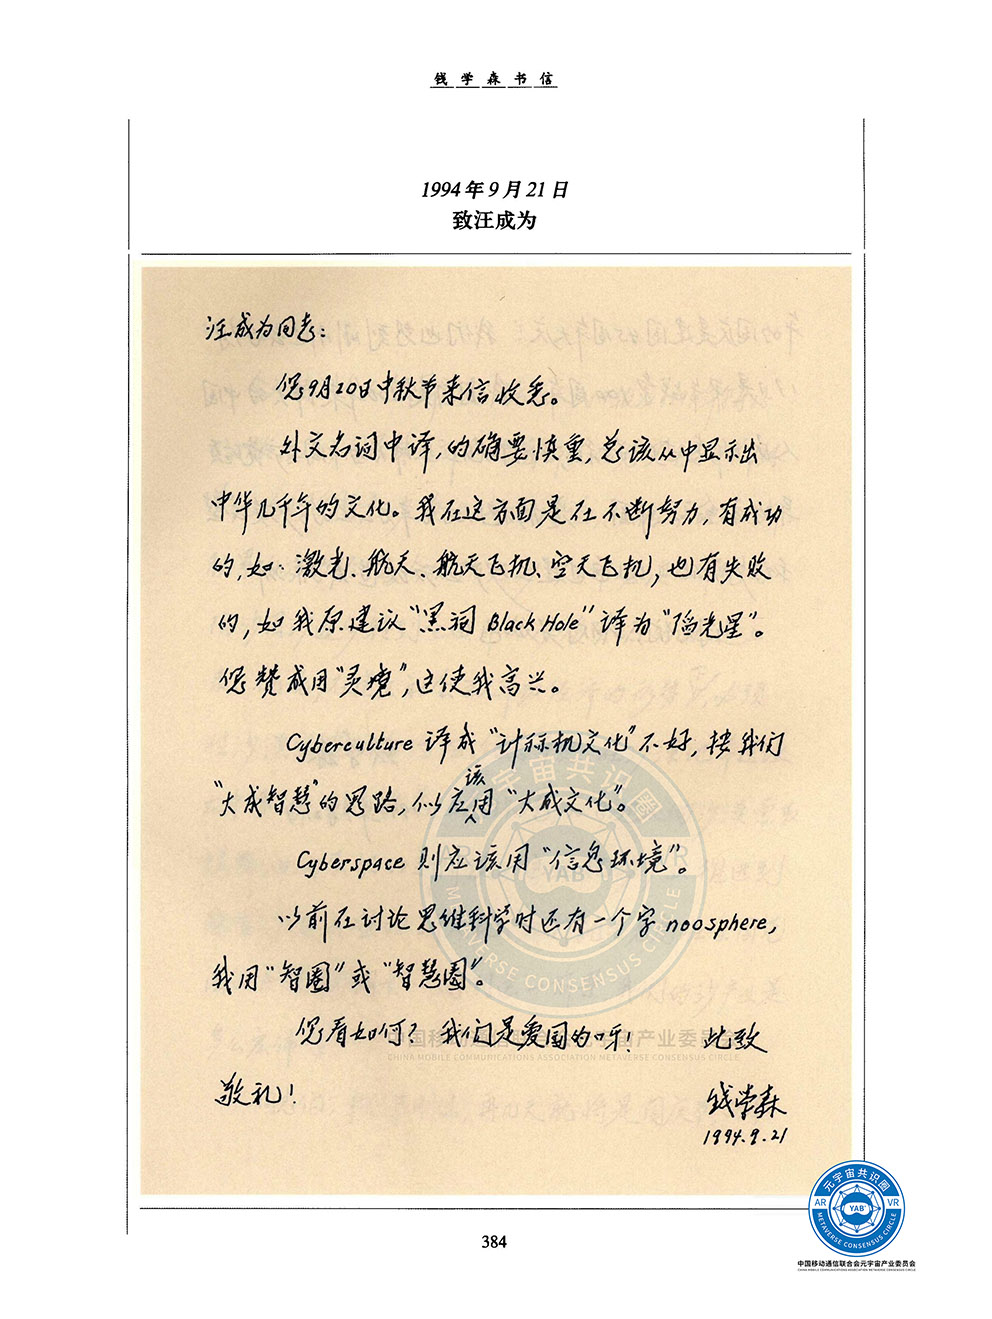 钱学森书信
1994年9月21日
致汪成为
汪成为同志：
您9月20日中秋节来信收悉。
外文名词中译，的确要慎重，总该从中显示出
中华几千年的文化。我在这方面是在不断努力，有成功
的，如：激光、航天、航天飞机、空天飞机，也有失败
的，如我原建议“黑洞 Black Hole”译为“陷光星”。
您赞成用“灵境”，这使我高兴。
Cyberculture 译成“计算机文化”不好，按我们
“大成智慧”的思路，似应该用“大成文化”。
Cyberspace 则应该用“信息环境”。
以前在讨论思维科学时还有一个字 noosphere，
我用“智圈”或“智慧圈”。
您看如何？我们是爱国的呀！ 此致
敬礼！
钱学森
1994.9.21
元宇宙共识圈
AR YAB VR
METAVERSE CONSENSUS CIRCLE
中国移动通信联合会元宇宙产业委员会
CHINA MOBILE COMMUNICATIONS ASSOCIATION METAVERSE CONSENSUS CIRCLE
384
元宇宙共识圈
AR YAB VR
METAVERSE CONSENSUS CIRCLE
中国移动通信联合会元宇宙产业委员会
CHINA MOBILE COMMUNICATIONS ASSOCIATION METAVERSE CONSENSUS CIRCLE